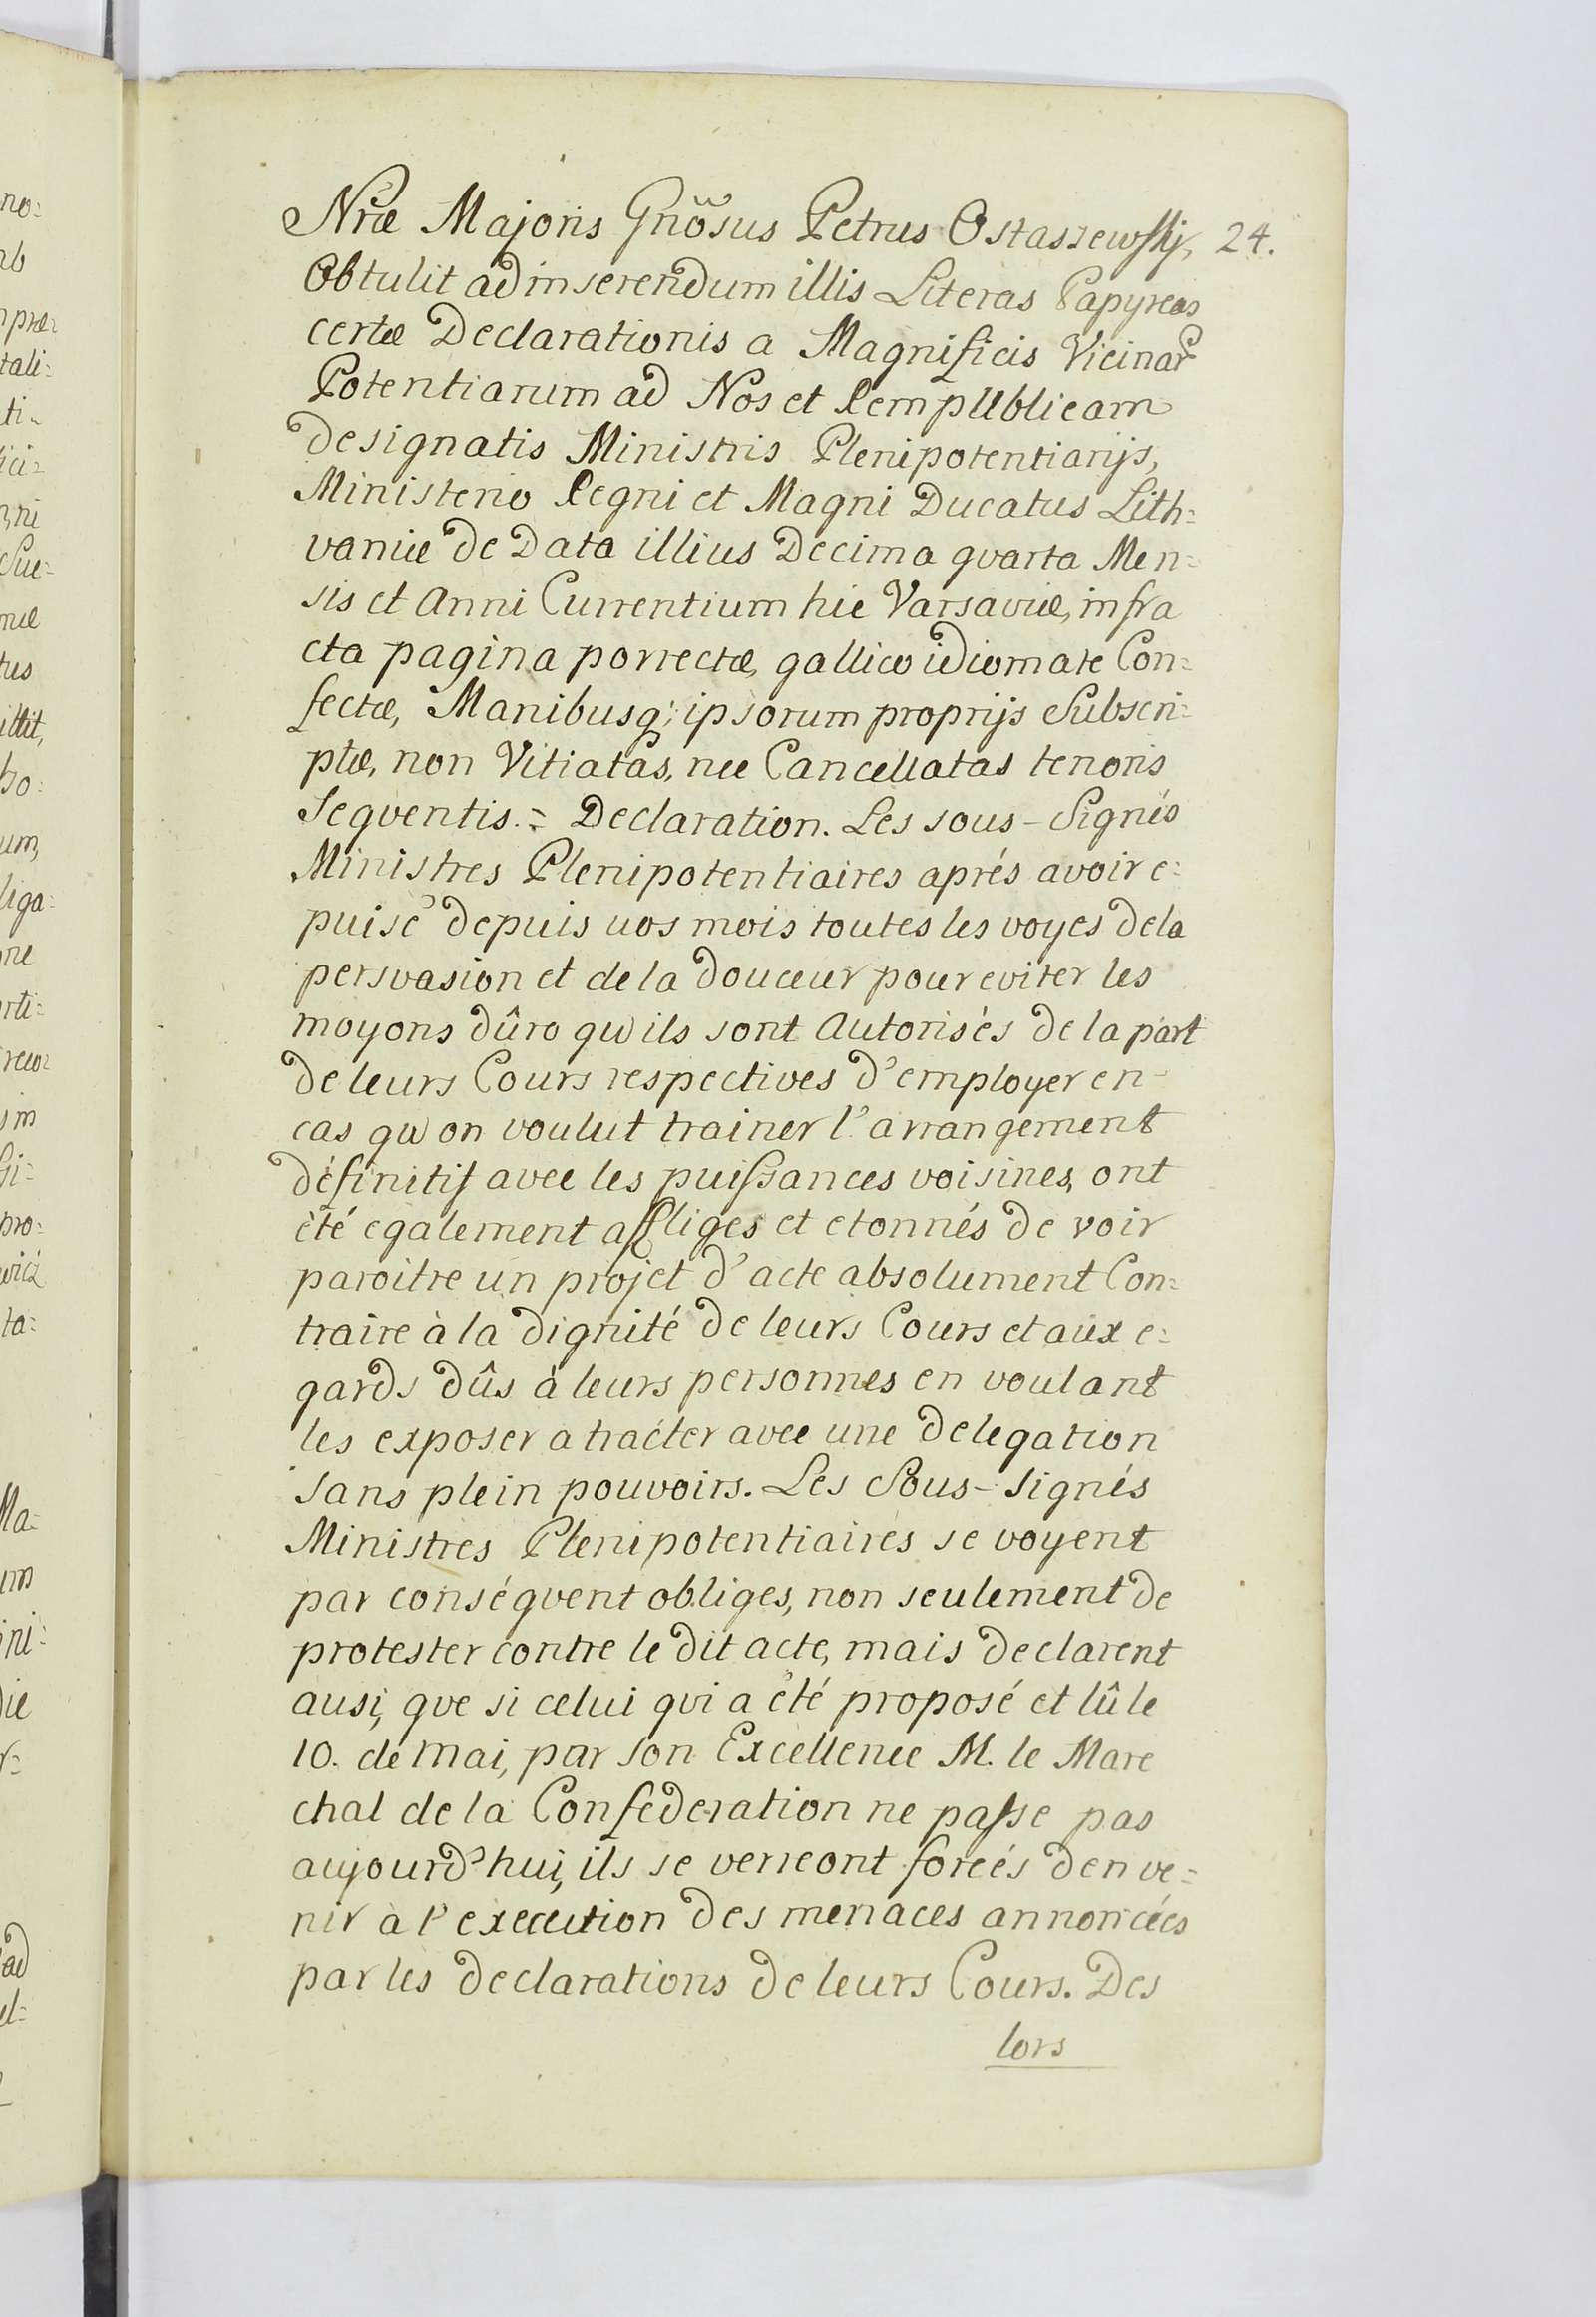 Nræ Majoris Gnõsus Petrus Ostaszewskj, 24.
Obtulit ad inserendum illis Literas Papyreas
certæ Declarationis a Magnificis Vicinar
Potentiarum ad Nos et Rempublicam
designatis Ministris Plenipotentiarijs,
Ministerio Regni et Magni Ducatus Lith=
vaniæ de Data illius Decima qvarta Men=
sis et Anni Currentium hic Varsaviæ, infra
cta pagina porrectæ, gallico idiomate Con=
fectæ, Manibusq; ipsorum proprijs Subscri=
ptæ, non Vitiatas, nec Cancellatas tenoris
Seqventis.= Declaration. Les sous-Signés
Ministres Plenipotentiaires aprés avoir e=
puisé depuis uos mois toutes les voyes dela
persvasion et de la douceur pour eviter les
moyons dûro qu ils sont Autorisés de la part
de leurs Cours respectives d'employer en-
cas qu on voulut trainer l'arrangement
définitif avec les puissances voisines, ont
été egalement affliges et etonnés de voir
paroitre un projet d'acte absolument Con=
traire à la dignité de leurs Cours et aux e=
gards dûs à leurs personnes en voulant
les exposer a tracter avec une delegation
sans plein pouvoirs. Les Sous-signés
Ministres Plenipotentiaires se voyent
par conséqvent obliges, non seulement de
protester contre le dit acte, mais declarent
ausi, qve si celui qvi a été proposé et lû le
10. de mai, par son Excellence M. le Mare
chal de la Confederation ne passe pas
aujourd'hui, ils se verreont forcés den ve=
nir à l'execution des menaces annoncées
par les declarations de leurs Cours. Des
lors